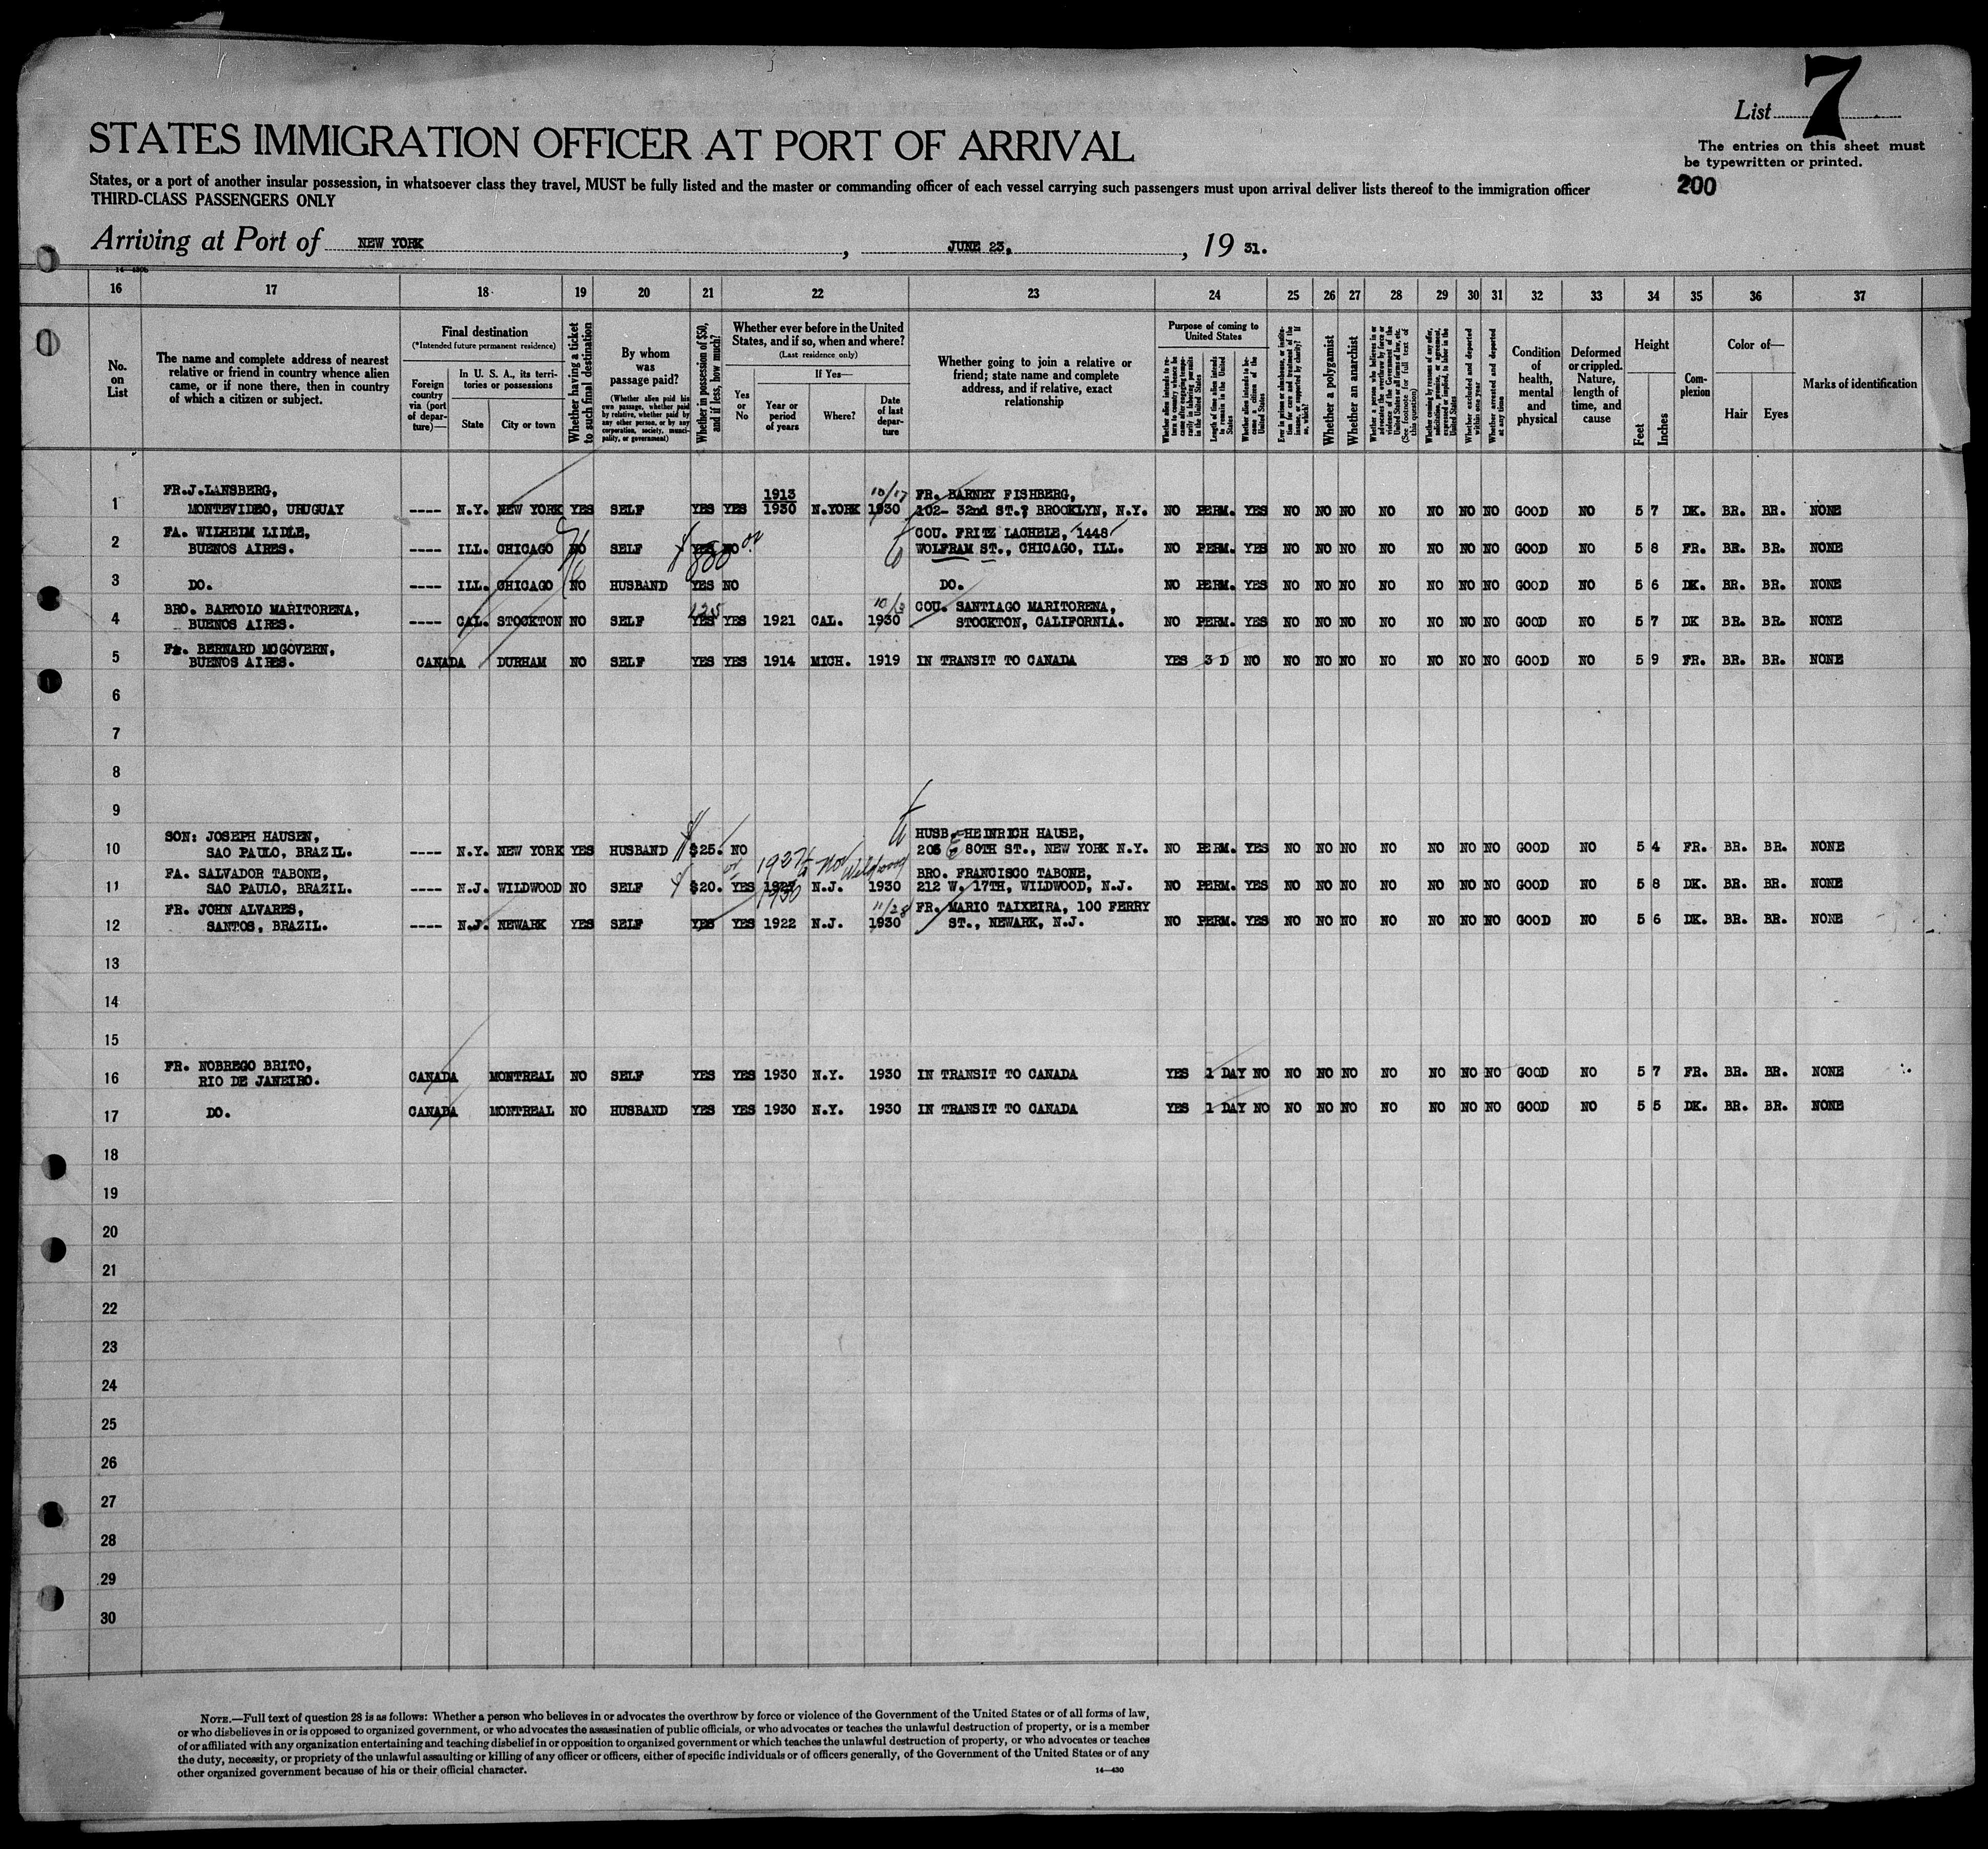 List 7
The entries on this sheet must
be typewritten or printed.
200
STATES IMMIGRATION OFFICER AT PORT OF ARRIVAL
States, or a port of another insular possession, in whatsoever class they travel, MUST be fully listed and the master or commanding officer of each vessel carrying such passengers must upon arrival deliver lists thereof to the immigration officer
THIRD-CLASS PASSENGERS ONLY
Arriving at Port of NEW YORK, JUNE 23, 19 31.
14—430b
16 17 18 19 20 21 22 23 24 25 26 27 28 29 30 31 32 33 34 35 36 37
No. on List
The name and complete address of nearest
relative or friend in country whence alien
came, or if none there, then in country
of which a citizen or subject.
Final destination
(*Intended future permanent residence)
Foreign country via (port of departure)—
In U. S. A., its territories or possessions
State
City or town
Whether having a ticket to such final destination
By whom was passage paid?
(Whether alien paid his own passage, whether paid by relative, whether paid by any other person, or by any corporation, society, municipality, or government)
Whether in possession of $50, and if less, how much?
Whether ever before in the United
States, and if so, when and where?
(Last residence only)
Yes or No
If Yes—
Year or period of years
Where?
Date of last departure
Whether going to join a relative or
friend; state name and complete
address, and if relative, exact
relationship
Purpose of coming to United States
Length of time alien intends to remain in the United States
Whether alien intends to become a citizen of the United States
Whether a polygamist
Whether an anarchist
Whether excluded and deported within one year
Whether arrested and deported at any time
Condition of health, mental and physical
Deformed or crippled. Nature, length of time, and cause
Height
Feet
Inches
Complexion
Color of—
Hair
Eyes
Marks of identification
1 FR.J.LANSBERG,
MONTEVIDEO, URUGUAY ---- N.Y. NEW YORK YES SELF YES YES 1913 1930 N.YORK 10/17 1930 FR. BARNEY FISHBERG,
102- 32nd ST., BROOKLYN, N.Y. NO PERM. YES NO NO NO NO NO NO NO GOOD NO 5 7 DK. BR. BR. NONE
2 FA. WILHEIM LIDLE,
BUENOS AIRES. ---- ILL. CHICAGO NO SELF YES 800 NO COU. FRITZ LACHELE, 1448
WOLFRAM ST., CHICAGO, ILL. NO PERM. YES NO NO NO NO NO NO NO GOOD NO 5 8 FR. BR. BR. NONE
3 DO. ---- ILL. CHICAGO NO HUSBAND YES NO DO. NO PERM. YES NO NO NO NO NO NO NO GOOD NO 5 6 DK. BR. BR. NONE
4 BRO. BARTOLO MARITORENA,
BUENOS AIRES. ---- CAL. STOCKTON NO SELF 125 YES YES 1921 CAL. 10/3 1930 COU. SANTIAGO MARITORENA,
STOCKTON, CALIFORNIA. NO PERM. YES NO NO NO NO NO NO NO GOOD NO 5 7 DK BR. BR. NONE
5 FA. BERNARD MCGOVERN,
BUENOS AIRES. CANADA DURHAM NO SELF YES YES 1914 MICH. 1919 IN TRANSIT TO CANADA YES 3 D NO NO NO NO NO NO NO NO GOOD NO 5 9 FR. BR. BR. NONE
6
7
8
9
10 SON: JOSEPH HAUSEN,
SAO PAULO, BRAZIL. ---- N.Y. NEW YORK YES HUSBAND $25. NO HUSB. HEINRICH HAUSE,
206 E 80TH ST., NEW YORK N.Y. NO PERM. YES NO NO NO NO NO NO NO GOOD NO 5 4 FR. BR. BR. NONE
11 FA. SALVADOR TABONE,
SAO PAULO, BRAZIL. ---- N.J. WILDWOOD NO SELF $20. YES 1927 1930 N.J. Wildwood 1930 BRO. FRANCISCO TABONE,
212 W. 17TH, WILDWOOD, N.J. NO PERM. YES NO NO NO NO NO NO NO GOOD NO 5 8 DK. BR. BR. NONE
12 FR. JOHN ALVARES,
SANTOS, BRAZIL. ---- N.J. NEWARK YES SELF YES YES 1922 N.J. 11/28 1930 FR. MARIO TAIXEIRA, 100 FERRY
ST., NEWARK, N.J. NO PERM. YES NO NO NO NO NO NO NO GOOD NO 5 6 DK. BR. BR. NONE
13
14
15
16 FR. NOBREGO BRITO,
RIO DE JANEIRO. CANADA MONTREAL NO SELF YES YES 1930 N.Y. 1930 IN TRANSIT TO CANADA YES 1 DAY NO NO NO NO NO NO NO NO GOOD NO 5 7 FR. BR. BR. NONE
17 DO. CANADA MONTREAL NO HUSBAND YES YES 1930 N.Y. 1930 IN TRANSIT TO CANADA YES 1 DAY NO NO NO NO NO NO NO NO GOOD NO 5 5 DK. BR. BR. NONE
18
19
20
21
22
23
24
25
26
27
28
29
30
NOTE.—Full text of question 28 is as follows: Whether a person who believes in or advocates the overthrow by force or violence of the Government of the United States or of all forms of law,
or who disbelieves in or is opposed to organized government, or who advocates the assassination of public officials, or who advocates or teaches the unlawful destruction of property, or is a member
of or affiliated with any organization entertaining and teaching disbelief in or opposition to organized government or which teaches the unlawful destruction of property, or who advocates or teaches
the duty, necessity, or propriety of the unlawful assaulting or killing of any officer or officers, either of specific individuals or of officers generally, of the Government of the United States or of any
other organized government because of his or their official character.
14—430